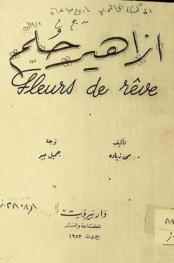 ازاهير حلم
Fleurs de rêve
تأليف
ترجمة
مي زياده
جميل جبر
دار بيروت
للطباعة والنشر
بيروت ١٩٥٢